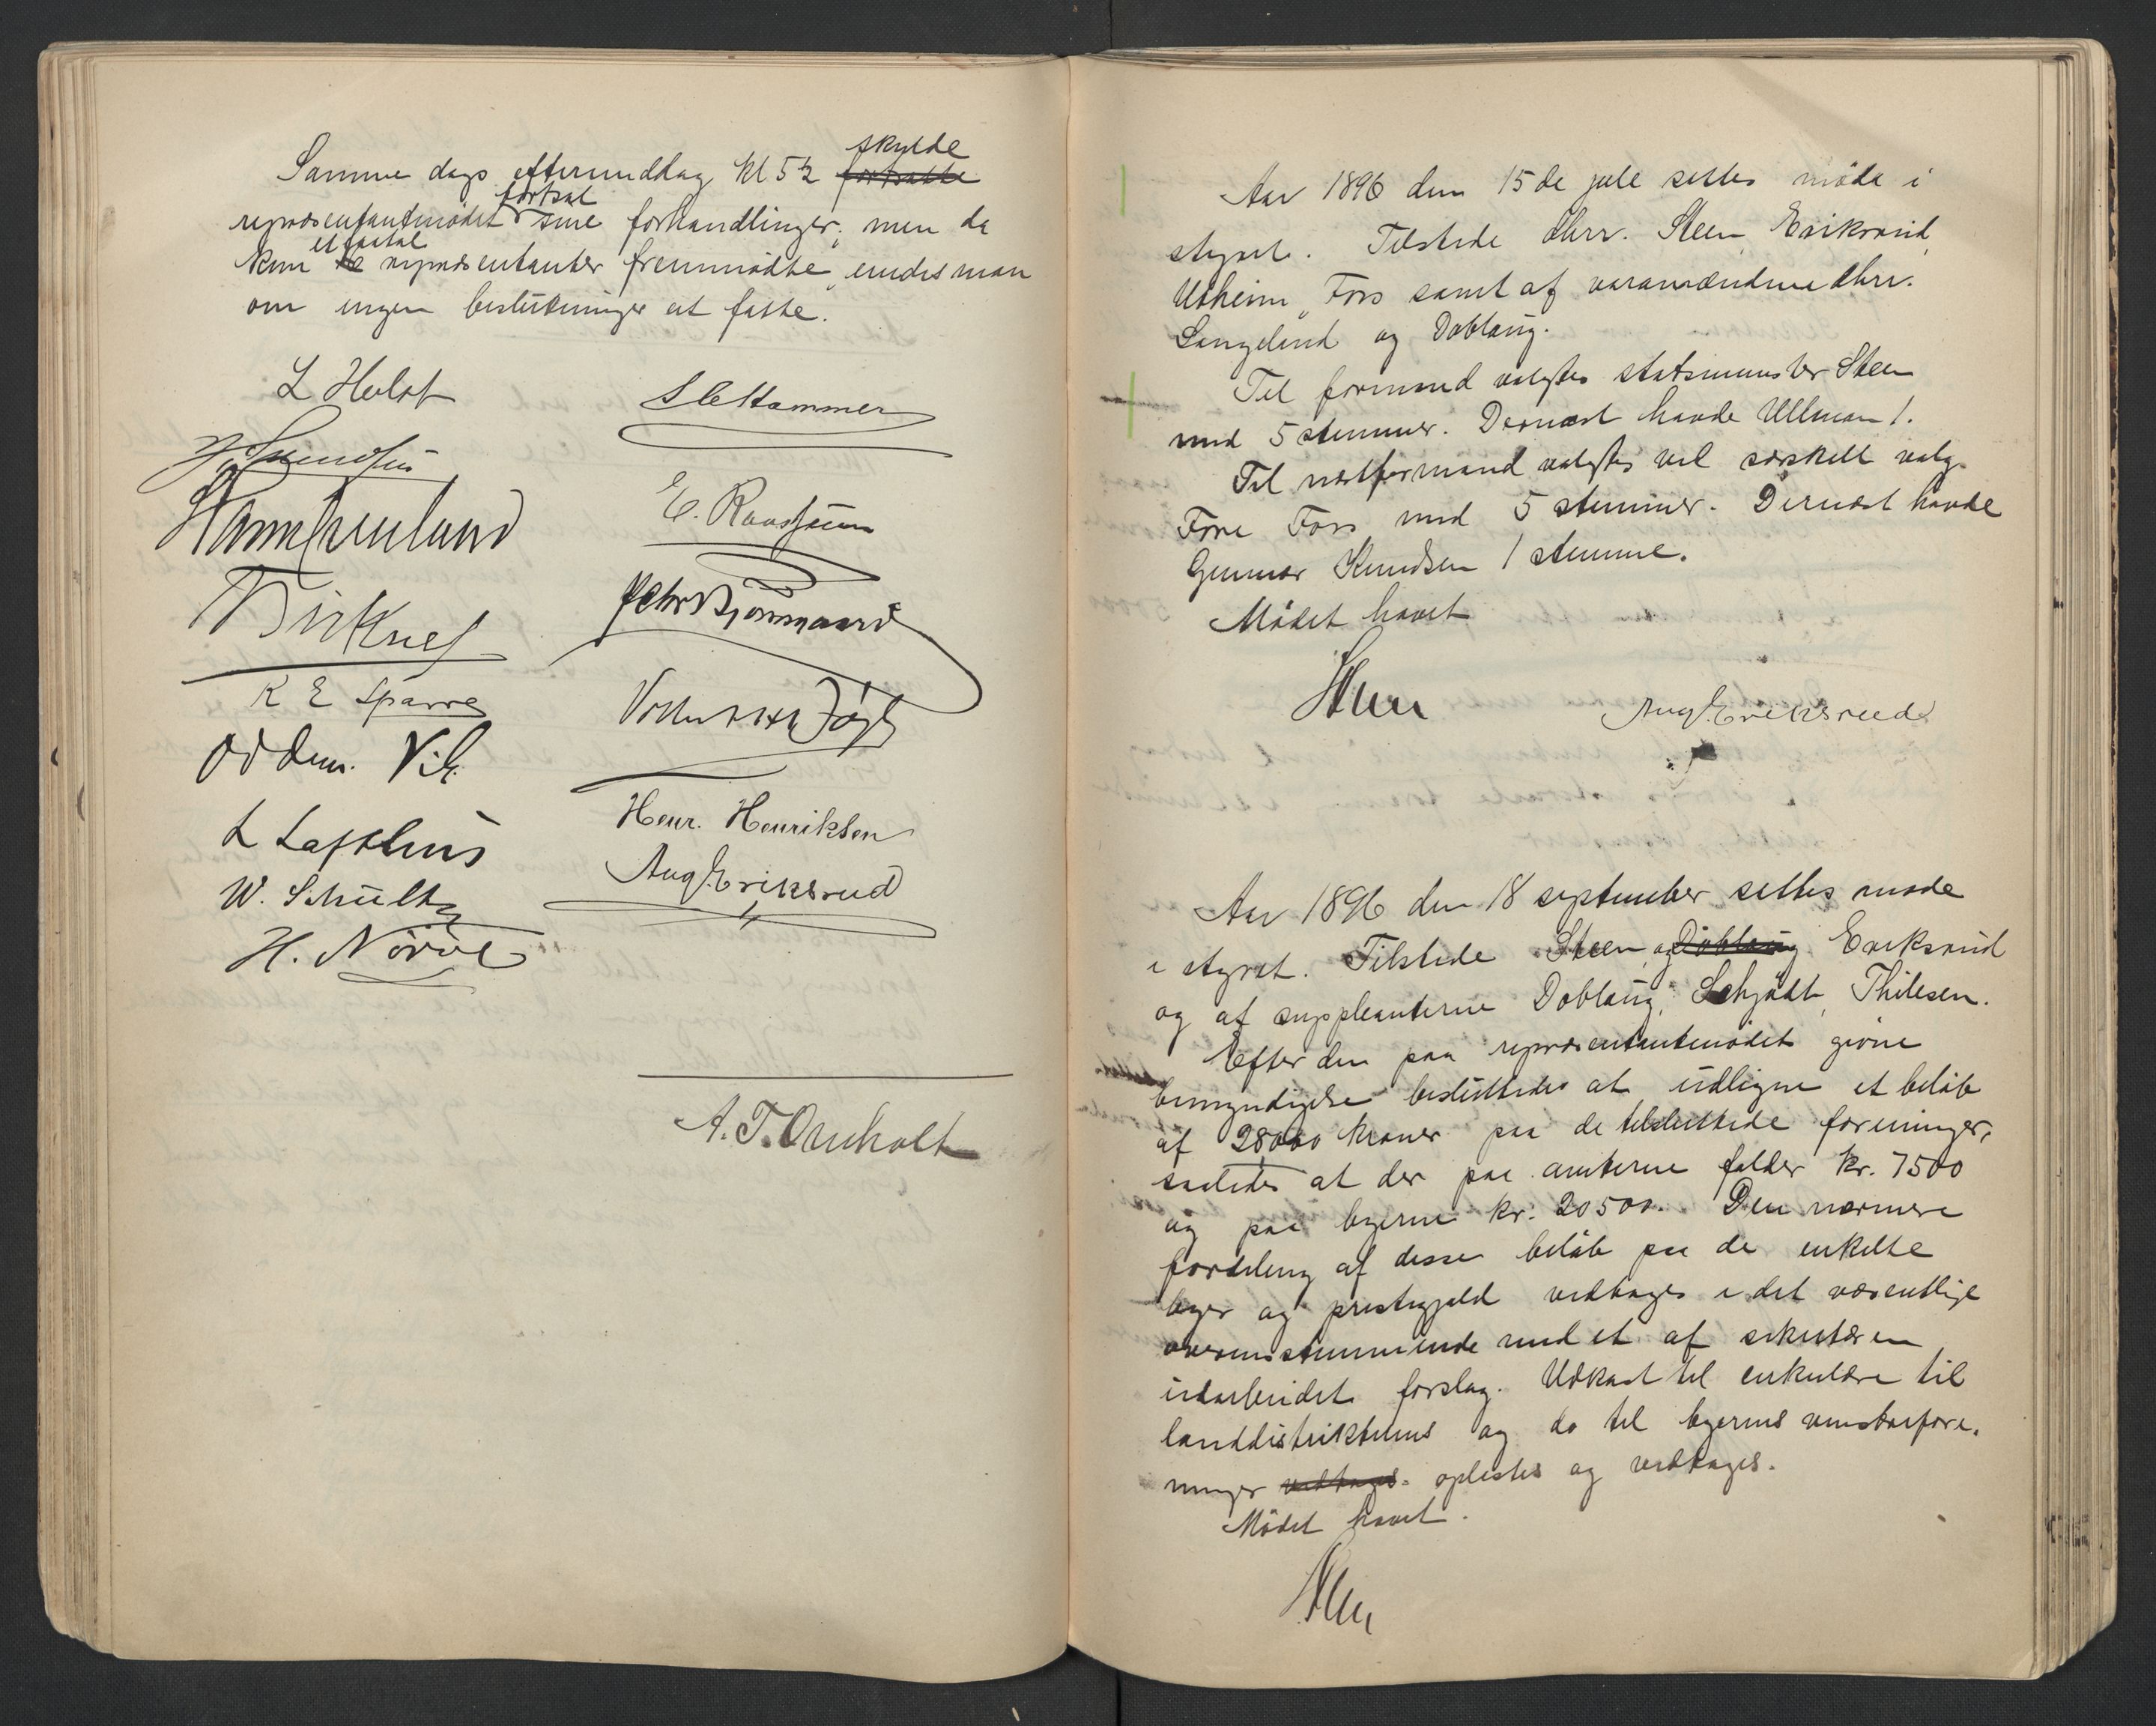 Samme dags eftermiddag kl 5½ ~~fortsatte~~ skulde
repræsentantmødet fortsat sine forhandlinger; men da
kun et faatal repræsentanter fremmødte, endes man
om ingen beslutninger at fatte.
L Holst
S C Hammer
E. Raastum
Birknes
K E Sparre
Odden. Vik.
L Lasthuus
W. Schultz
H. Nörve
Henr. Henriksen
Aug. Eriksrud
A. T. Omholt
Aar 1896 den 15de jule settes møde i
styret. Tilstede dhrr. Steen, Eriksrud,
Utheim, Foss samt af varamændene dhrr.
Langeland og Dobloug.
Til formand valgtes statsminister Steen
med 5 stemmer. Dernæst havde Ullmann 1.
Til næstformand valgtes ved særskilt valg
Tore Foss med 5 stemmer. Dernæst havde
Gunnar Knudsen 1 stemme.
Mødet hævet
Steen
Aug. Eriksrud
Aar 1896 den 18 september settes møde
i styret. Tilstede Steen, og ~~Dobloug~~ Eriksrud
og af suppleanterne Dobloug, Schjødt, Thilesen.
Efter den paa repræsentantmødet givne
bemyndigelse besluttedes at udligne et beløb
af 28000 kroner paa de tilsluttede foreninger,
saaledes at der paa amterne falder kr. 7500
og paa byerne kr. 20500. Den nærmere
fordeling af disse beløb paa de enkelte
byer og prestegjeld vedtages i det væsentlige
overensstemmende med et af sekretæren
udarbeidet forslag. Udkast til cirkulære til
landdistrikternes og do til byernes venstrefore-
ninger ~~vedtages~~ oplæstes og vedtages.
Mødet hævet.
Steen